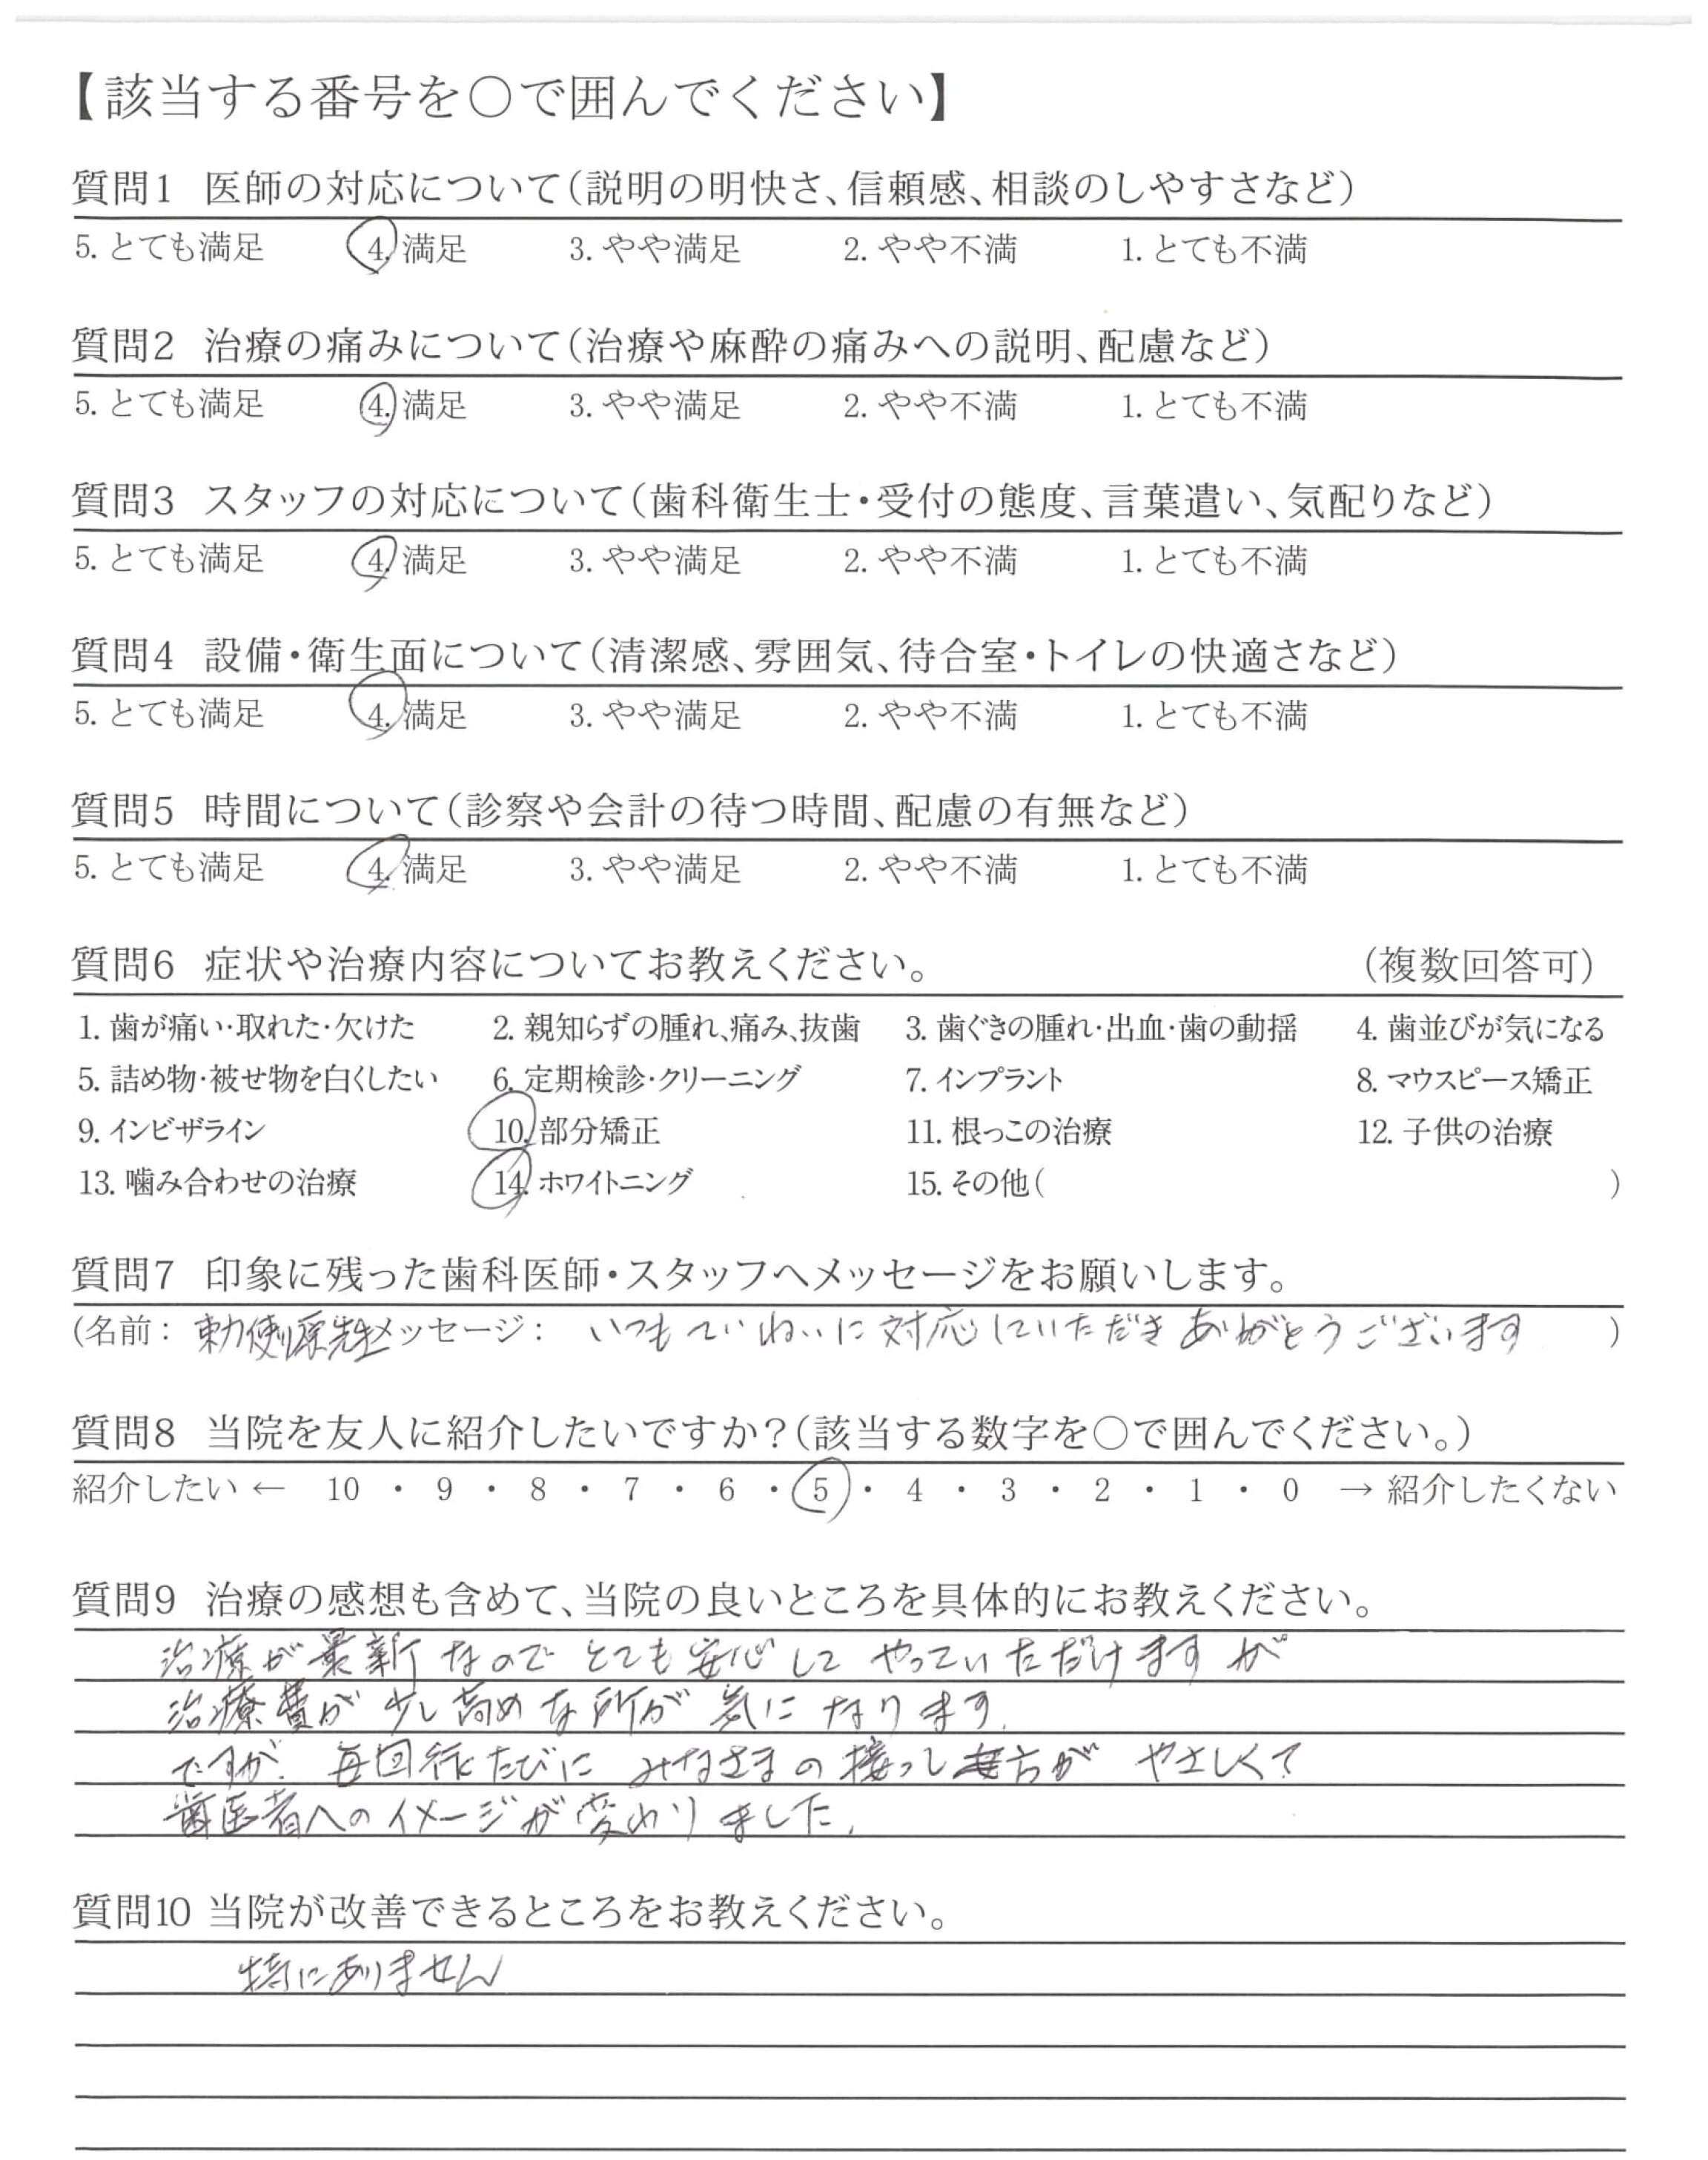 【該当する番号を〇で囲んでください】
質問1 医師の対応について(説明の明快さ、信頼感、相談のしやすさなど)
5. とても満足 4. 満足 3. やや満足 2. やや不満 1. とても不満
質問2 治療の痛みについて(治療や麻酔の痛みへの説明、配慮など)
5. とても満足 4. 満足 3. やや満足 2. やや不満 1. とても不満
質問3 スタッフの対応について(歯科衛生士・受付の態度、言葉遣い、気配りなど)
5. とても満足 4. 満足 3. やや満足 2. やや不満 1. とても不満
質問4 設備・衛生面について(清潔感、雰囲気、待合室・トイレの快適さなど)
5. とても満足 4. 満足 3. やや満足 2. やや不満 1. とても不満
質問5 時間について(診察や会計の待つ時間、配慮の有無など)
5. とても満足 4. 満足 3. やや満足 2. やや不満 1. とても不満
質問6 症状や治療内容についてお教えください。 (複数回答可)
1. 歯が痛い・取れた・欠けた 2. 親知らずの腫れ、痛み、抜歯 3. 歯ぐきの腫れ・出血・歯の動揺 4. 歯並びが気になる
5. 詰め物・被せ物を白くしたい 6. 定期検診・クリーニング 7. インプラント 8. マウスピース矯正
9. インビザライン 10. 部分矯正 11. 根っこの治療 12. 子供の治療
13. 噛み合わせの治療 14. ホワイトニング 15. その他( )
質問7 印象に残った歯科医師・スタッフへメッセージをお願いします。
(名前: 勅使原先生 メッセージ: いつもていねいに対応していただきありがとうございます )
質問8 当院を友人に紹介したいですか?(該当する数字を〇で囲んでください。)
紹介したい ← 10 ・ 9 ・ 8 ・ 7 ・ 6 ・ 5 ・ 4 ・ 3 ・ 2 ・ 1 ・ 0 → 紹介したくない
質問9 治療の感想も含めて、当院の良いところを具体的にお教えください。
治療が最新なので とても安心して やっていただけますが
治療費が少し高めな所が気になります.
ですが. 毎回行くたびに みなさまの接っし方が やさしくて
歯医者へのイメージが変わりました.
質問10 当院が改善できるところをお教えください。
特にありません